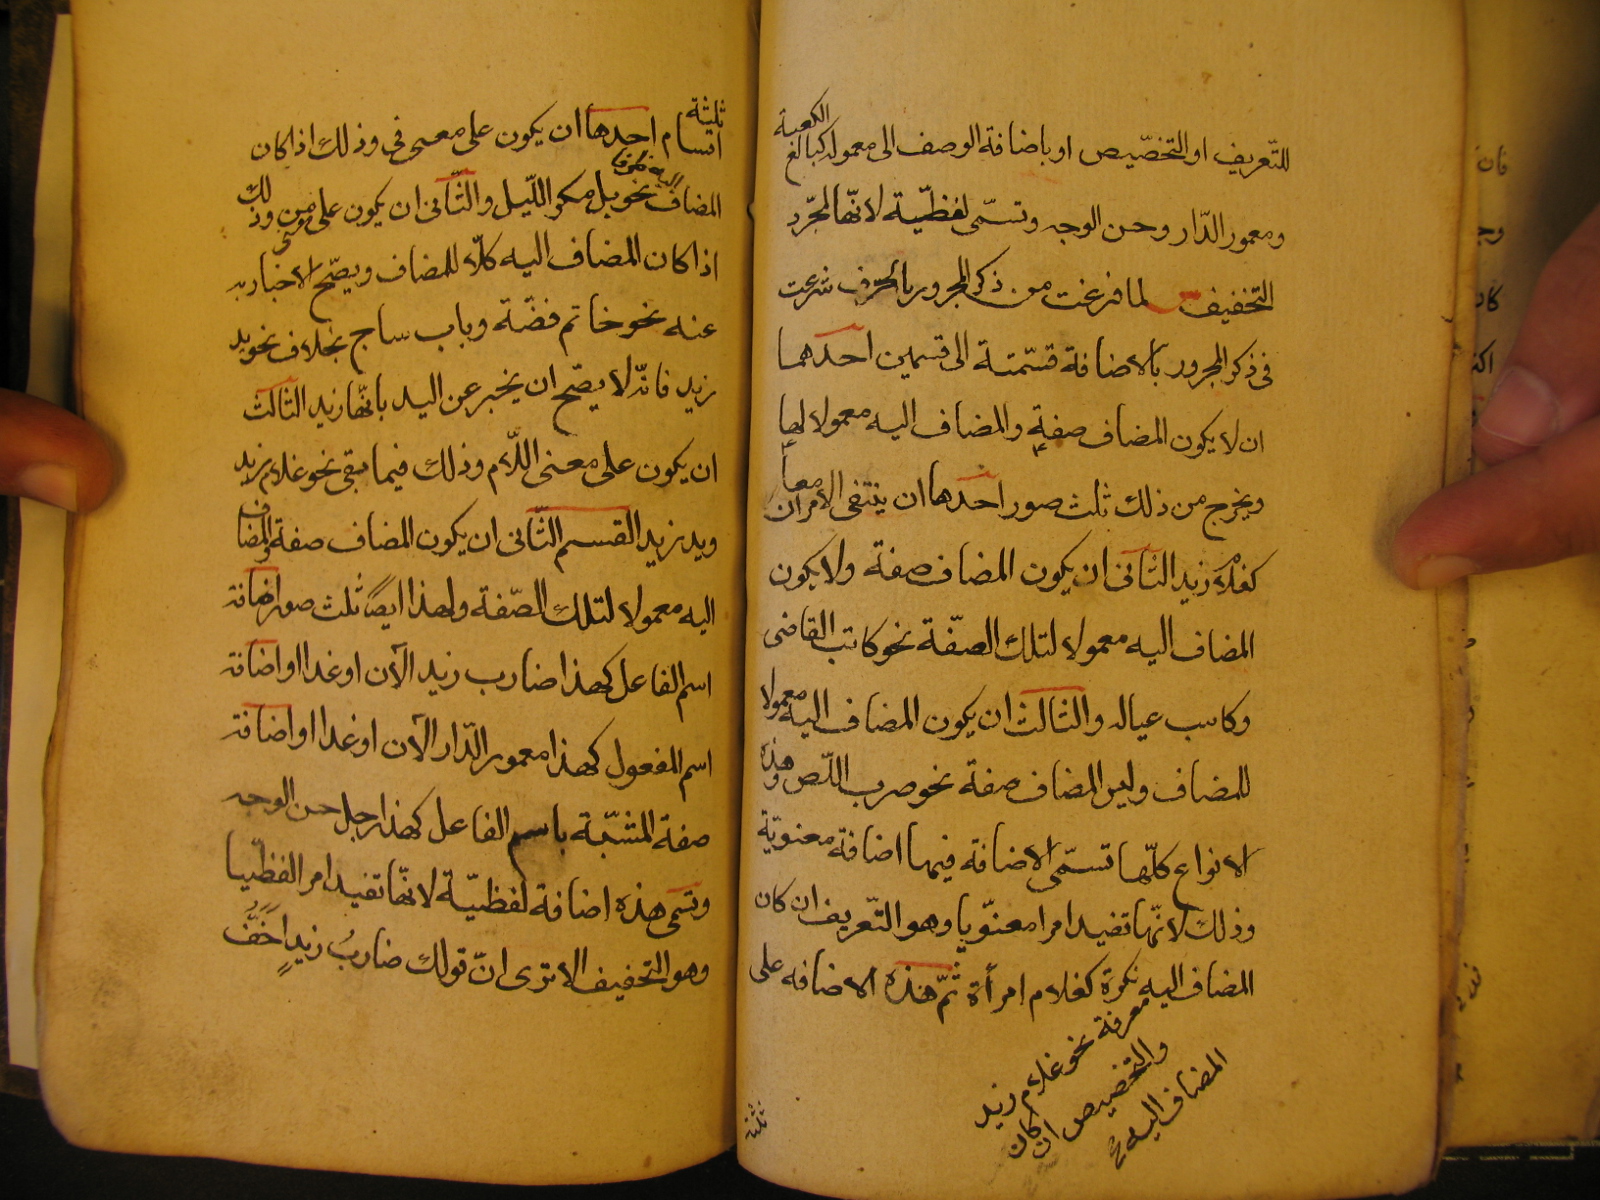 للتّعريف او التخصّيص او باضافة الوصف الى معموله كبالغ الكعبة
ومعمور الدّار وحسن الوجه وتسمّى لفظيّة لانّها لمجرّد
التخفيف ش لما فرغت من ذكر المجرور بالحرف شرعت
فى ذكر المجرور بالاضافة قسّمته الى قسمين احدهما
ان لا يكون المضاف صفة والمضاف اليه معمولا لها
ويخرج من ذلك ثلث صور احدها ان ينتفى الامران معا
كغلام زيد الثانى ان يكون المضاف صفة ولا يكون
المضاف اليه معمولا لتلك الصّفة نحو كاتب القاضى
وكاسب عياله والثالث ان يكون المضاف اليه معمولا
للمضاف وليس المضاف صفة نحو ضرب اللّص وهذه
الانواع كلّها تسمّى الاضافة فيها اضافة معنويّة
وذلك لانّها تفيد امرا معنّويا وهو التّعريف ان كان
المضاف اليه نكرة كغلام امرأة ثمّ هذه الاضافه على
معرفة نحو غلام زيد
والتخصيص ان كان
المضاف اليه
ثلثة
ثلثة
اقسام احدها ان يكون على معنى فى وذلك اذا كان
المضاف اليه ظرفا نحو بل مكر اللّيل والثّانى ان يكون على معنى من وذلك
اذا كان المضاف اليه كلّا للمضاف ويصّح الاخبار به
عنه نحو خاتم فضّة وباب ساج بخلاف نحو يد
زيد فانّه لا يصّح ان يخبر عن اليد بانّها زيد الثالث
ان يكون على معنى اللّام وذلك فيما بقى نحو غلام زيد
ويد زيد القسم الثّانى ان يكون المضاف صفة والمضاف
اليه معمولا لتلك الصّفة ولهذا ايضا ثلث صور اضافة
اسم الفاعل كهذا ضارب زيد الآن او غدا او اضافة
اسم المفعول كهذا معمور الدّار الآن او غدا او اضافة
صفة المشبّهة باسم الفاعل كهذا رجل حسن الوجه
وتسمى هذه اضافة لفظيّة لانّها تفيد امرا لفظّيا
وهو التخفيف الا ترى انّ قولك ضاربُ زيدٍ اخَفُّ